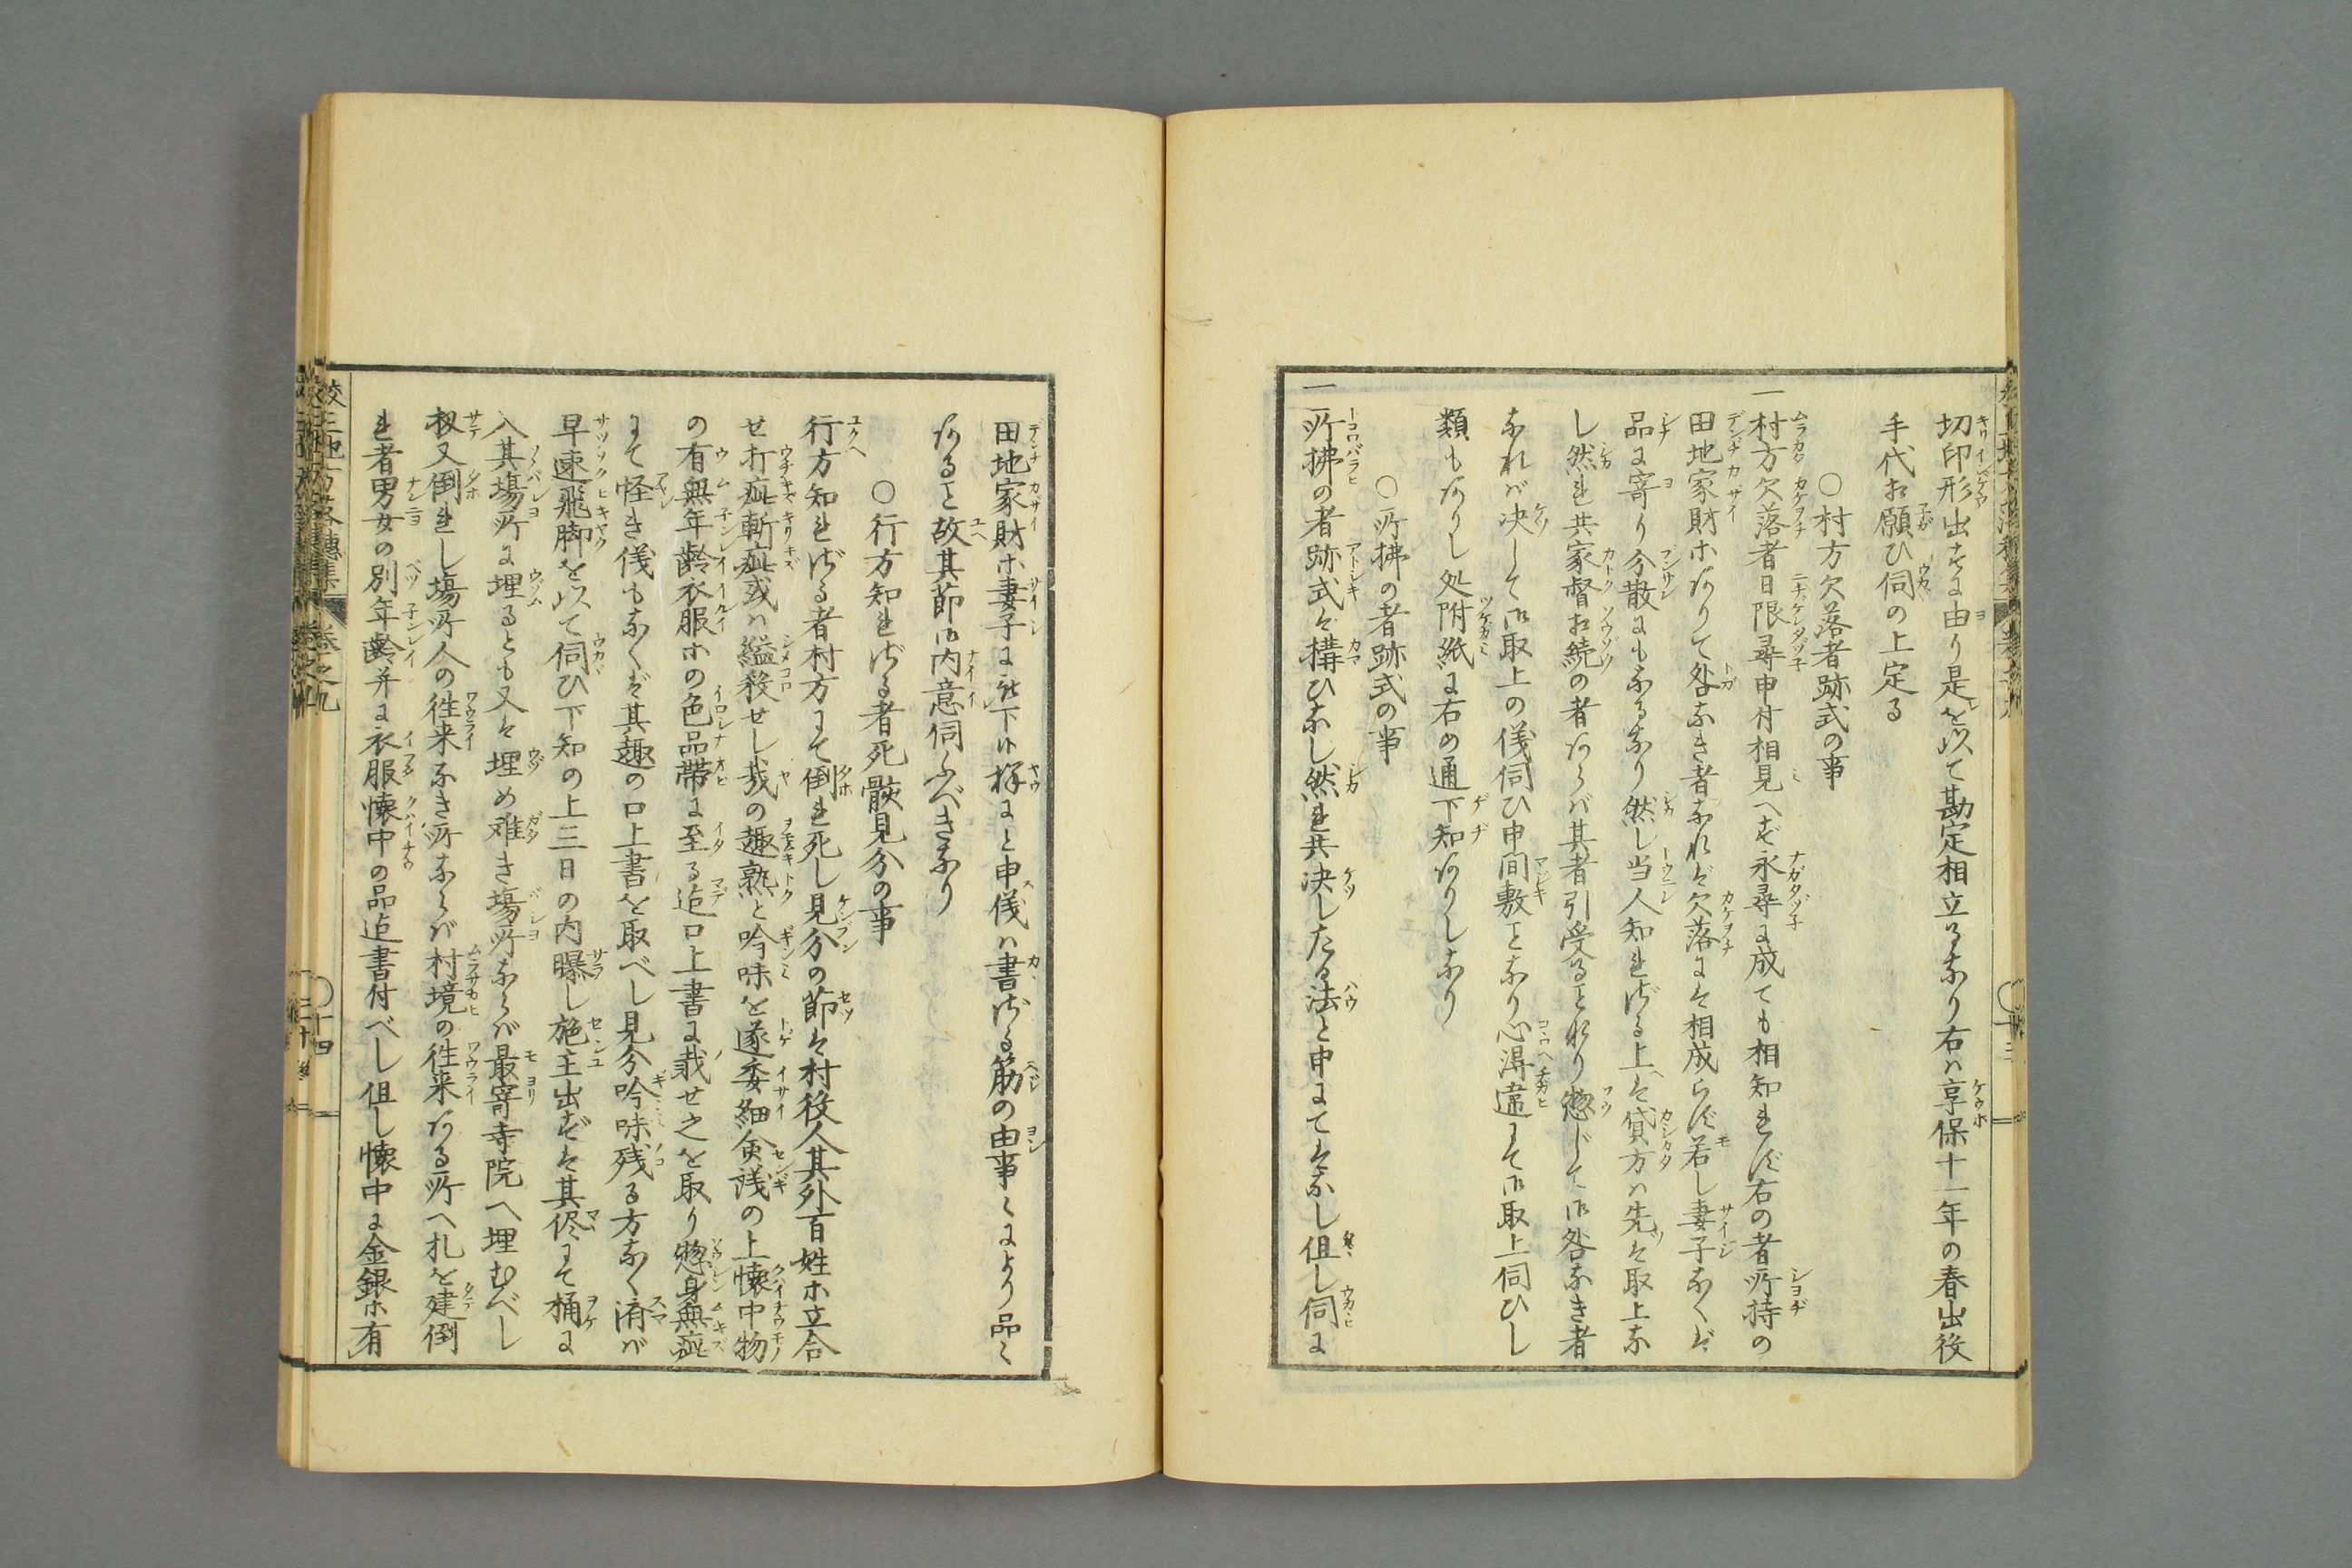 切印形出さずに由り是を以て勘定相立るなり右ハ享保十一年の春出役
手代お願ひ伺の上定る
○村方欠落者跡式の事
一村方欠落者日限尋申付相見へず永尋に成ても相知れず右の者所持の
田地家財ホありて咎なき者なれば欠落にては相成らず若し妻子なくば
品に寄り分散にもなるなり然し当人知れざる上ハ貸方ハ先は取上な
し然れ共家督相続の者あらバ其者引受ることなり惣じて御咎なき者
なれバ決して御取上の儀伺ひ申間敷ことなり心得違にて御取上伺ひし
類もありし処附紙に右の通下知ありしなり
○所拂の者跡式の事
一所拂の者跡式は構ひなし然れ共決したる法と申にてはなし但し伺に
田地家財ホ妻子に被下候様にと申儀ハ書ざる筋の由事々により品々
あること故其節御内意伺ふべきなり
○行方知れざる者死骸見分の事
行方知れざる者村方にて倒れ死し見分の節は村役人其外百姓ホ立合
せ打疵斬疵或ハ縊殺せし哉の趣熟と吟味を遂委細僉議の上懐中物
の有無年齢衣服ホの色品帯に至る迄口上書に載せ之を取り惣身無疵
にて怪き儀もなくば其趣の口上書を取べし見分吟味残る方なく済バ
早速飛脚を以て伺ひ下知の上三日の内曝し施主出ずば其侭にて桶に
入其場所に埋るとも又は埋め難き場所ならバ最寄寺院へ埋むべし
扨又倒れし場所人の往来なき所ならバ村境の往来ある所へ札を建倒
れ者男女の別年齢并に衣服懐中の品迄書付べし但し懐中に金銀ホ有